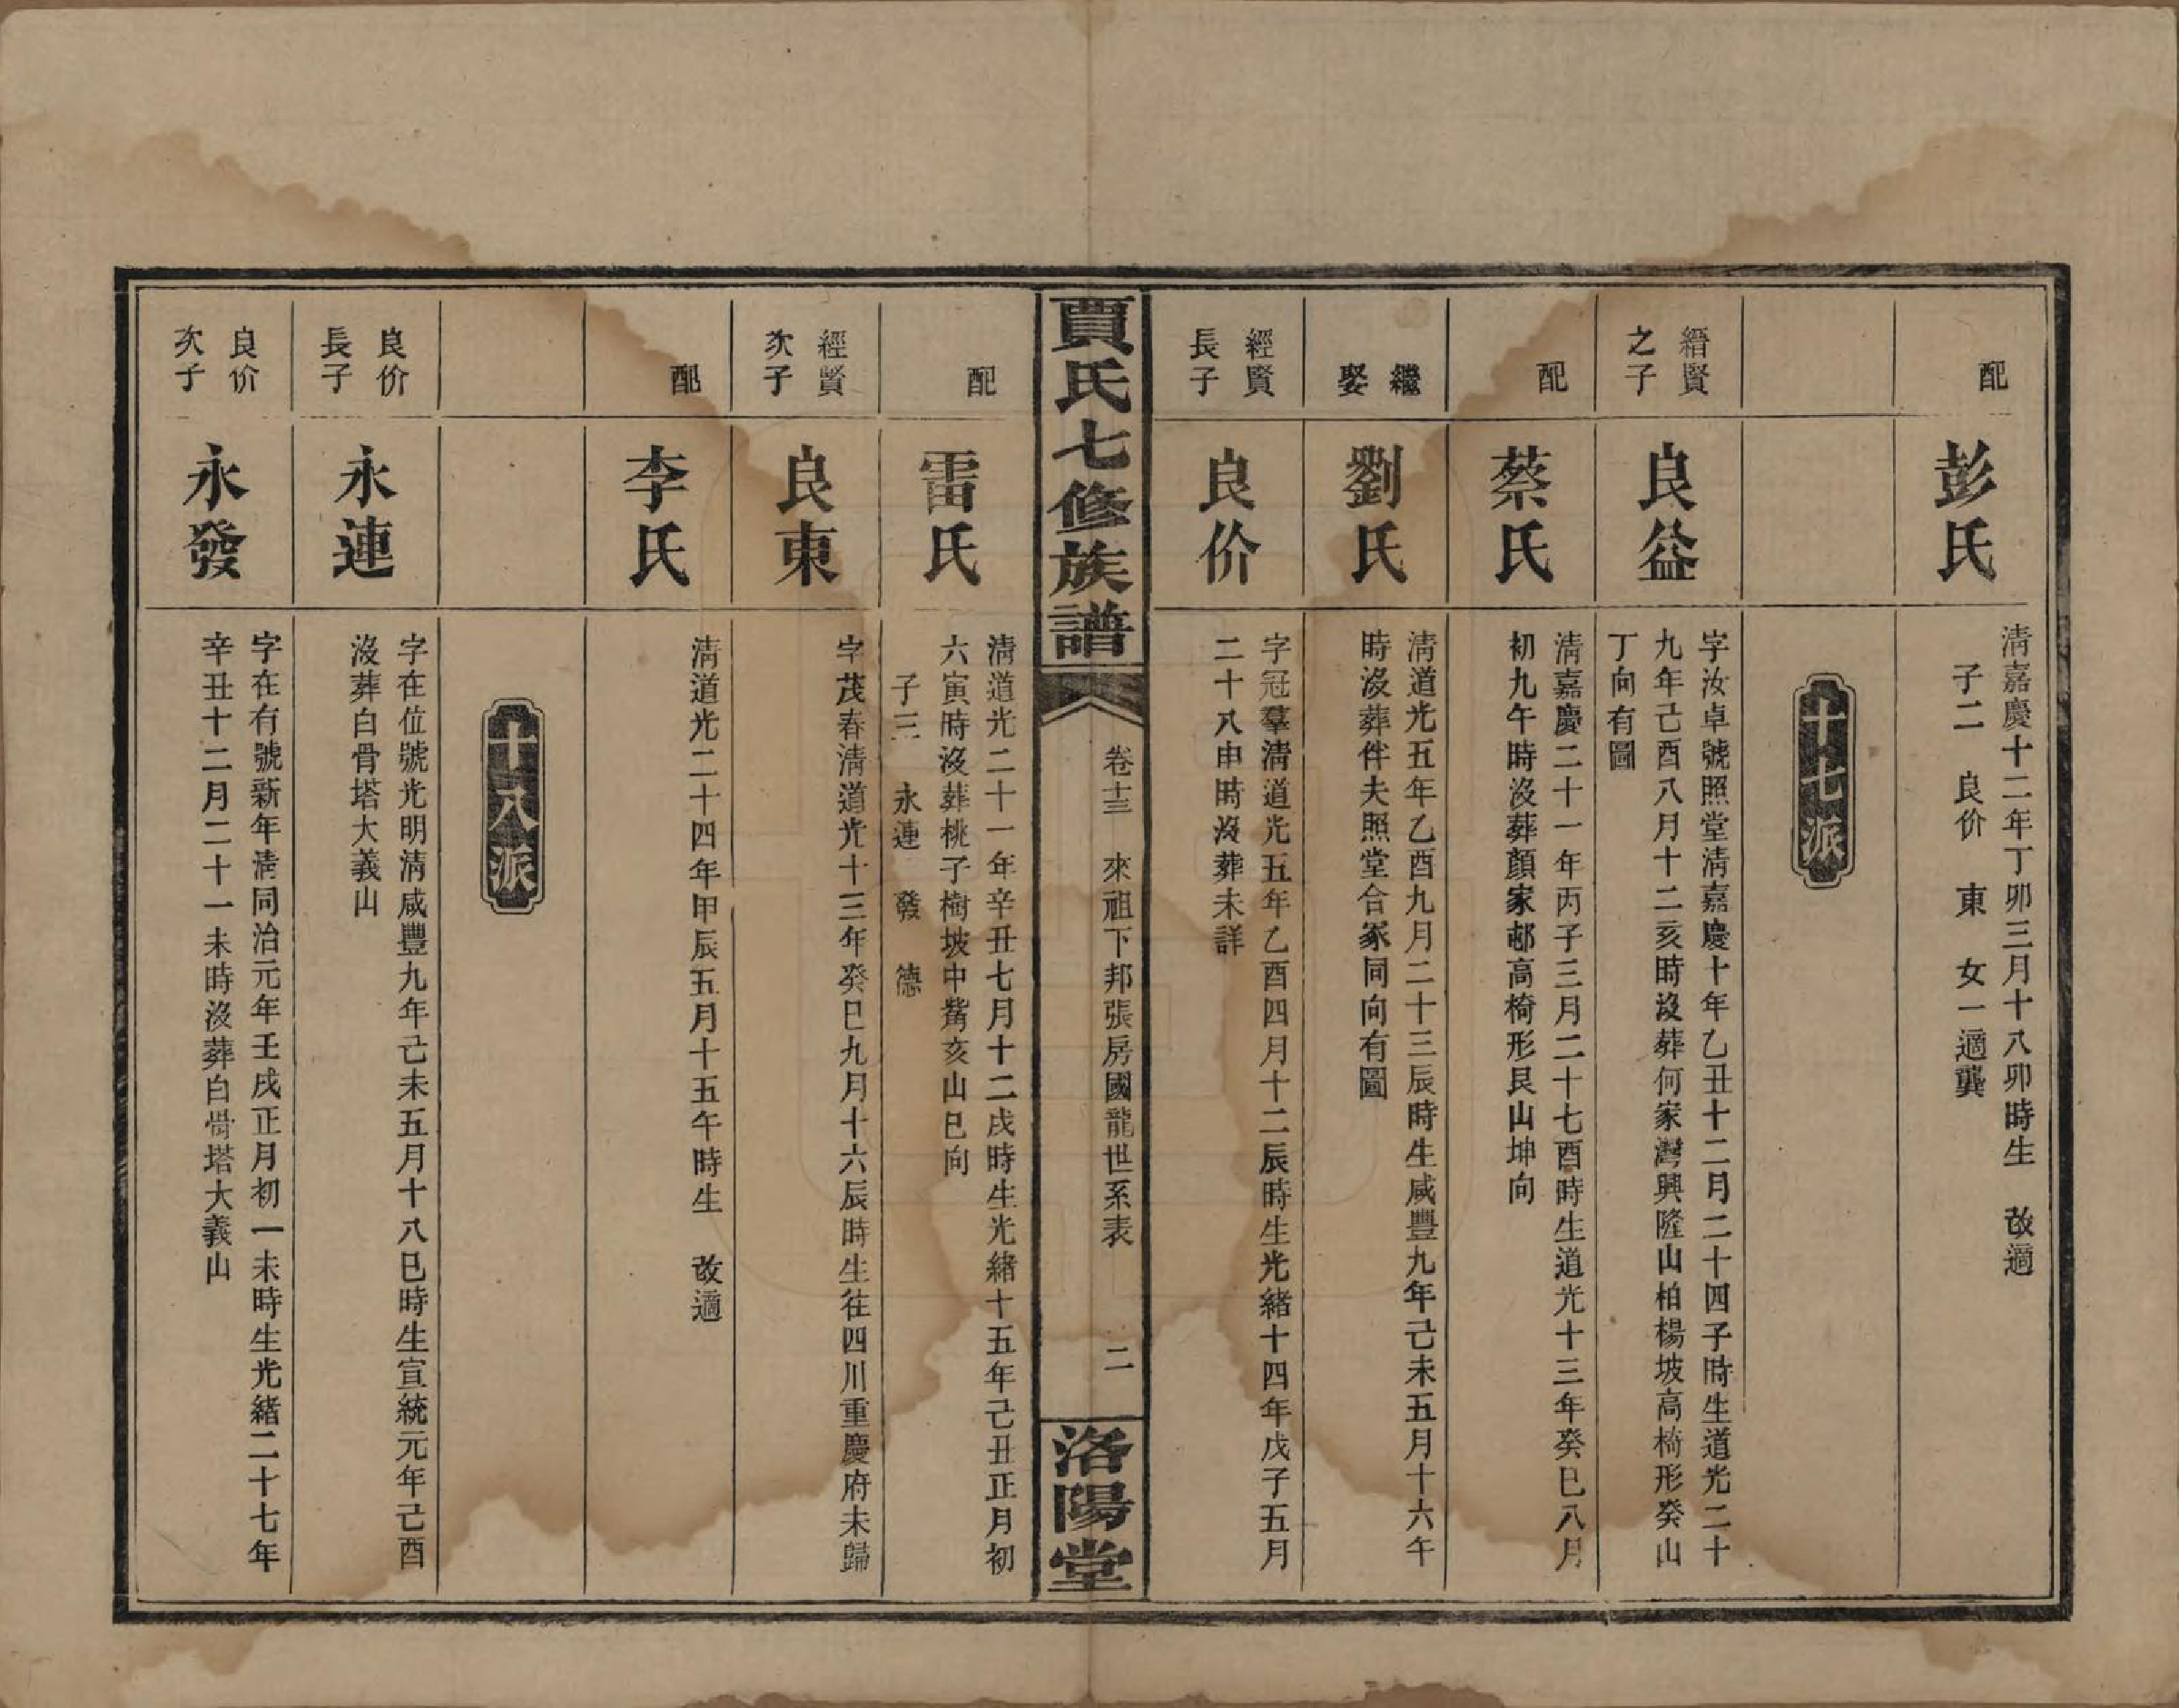 配
彭氏
淸嘉慶十二年丁卯三月十八卯時生　改適
子二　良价　東　女一適龔
十七派
縉賢
之子
良益
字汝卓號照堂淸嘉慶十年乙丑十二月二十四子時生道光二十
九年己酉八月十二亥時沒葬何家灣興隆山柏楊坡高椅形癸山
丁向有圖
配
蔡氏
淸嘉慶二十一年丙子三月二十七酉時生道光十三年癸巳八月
初九午時沒葬顏家邨高椅形艮山坤向
繼
娶
劉氏
淸道光五年乙酉九月二十三辰時生咸豐九年己未五月十六午
時沒葬伴夫照堂合冢同向有圖
經賢
長子
良价
字冠羣淸道光五年乙酉四月十二辰時生光緖十四年戊子五月
二十八申時沒葬未詳
賈氏七修族譜
卷十三　來祖下邦張房國龍世系表　二
洛陽堂
配
雷氏
淸道光二十一年辛丑七月十二戌時生光緖十五年己丑正月初
六寅時沒葬桃子樹坡中嘴亥山巳向
子三　永連　發　德
經賢
次子
良東
字茂春淸道光十三年癸巳九月十六辰時生往四川重慶府未歸
配
李氏
淸道光二十四年甲辰五月十五午時生　改適
十八派
良价
長子
永連
字在位號光明淸咸豐九年己未五月十八巳時生宣統元年己酉
沒葬白骨塔大義山
良价
次子
永發
字在有號新年淸同治元年壬戌正月初一未時生光緖二十七年
辛丑十二月二十一未時沒葬白骨塔大義山